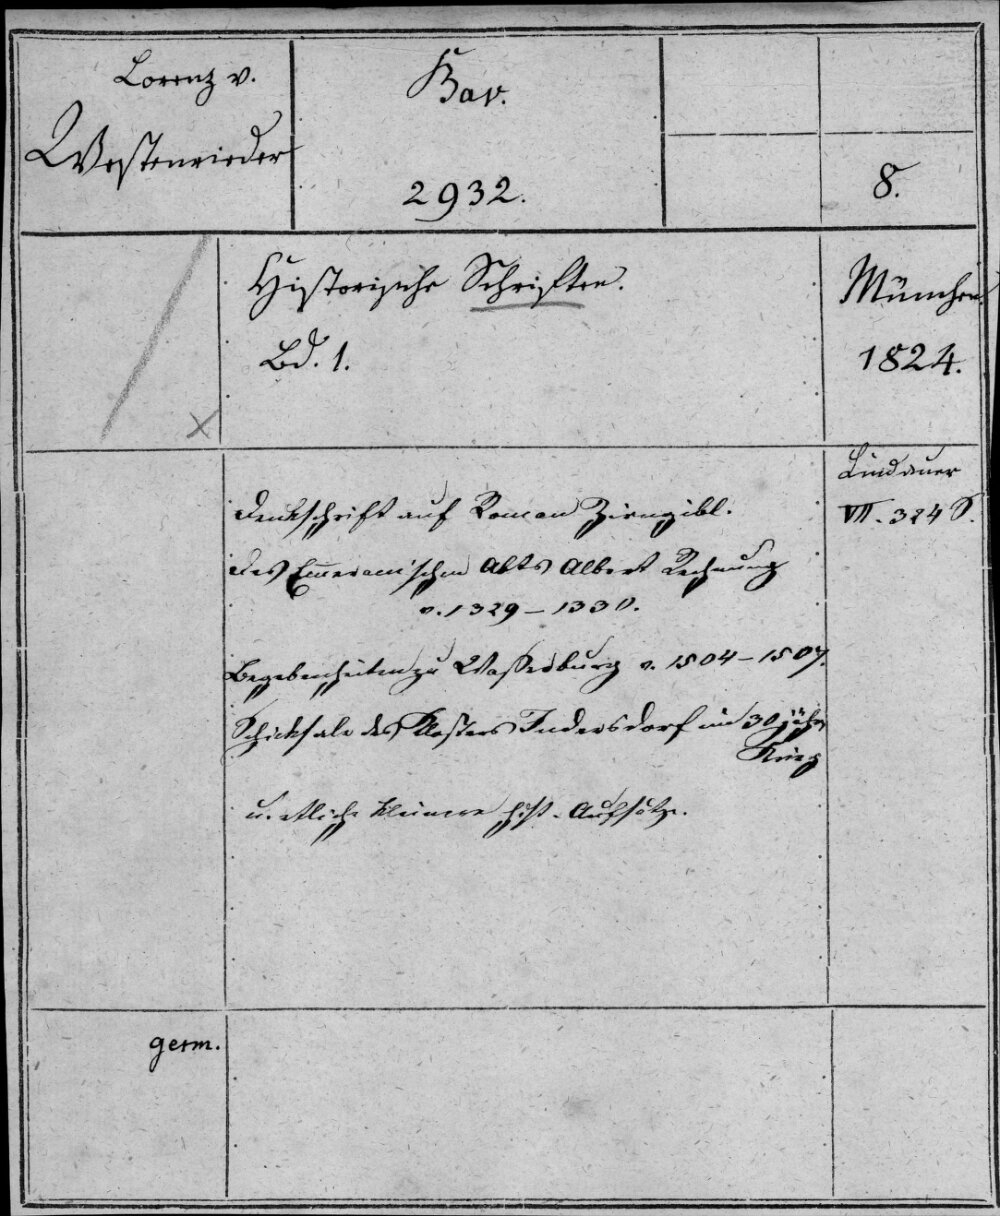 Lorenz v.
Westenrieder
Bav.
2932.
8.
Historische Schriften.
Bd. 1.
München
1824.
Lindauer
VII. 324 S.
Denkschrift auf Roman Zirngibl.
Des Emeramischen Abts Albert Rechnung
v. 1329 – 1330.
Begebenheiten zu Wasserburg v. 1504 – 1507.
Schicksale des Klosters Indersdorf im 30jähr.
Krieg
u. etliche kleinere hist. Aufsätze.
germ.